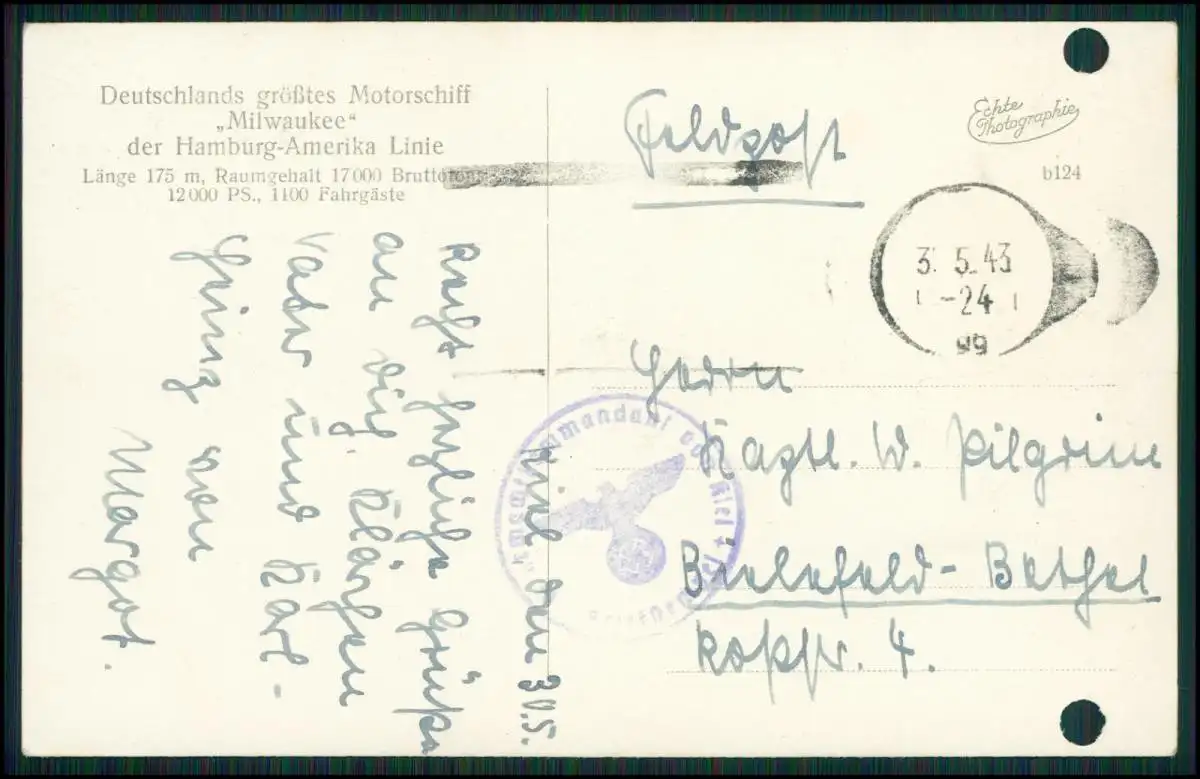 Deutschlands größtes Motorschiff
„Milwaukee“
der Hamburg-Amerika Linie
Länge 175 m, Raumgehalt 17000 Bruttotons
12000 PS., 1100 Fahrgäste
Feldpost
Echte
Photographie
b124
3. 5.43
-24
99
Herrn
Kaptl. W. Pilgrim
Bielefeld-Bethel
Kiel
Kiel den 30.5.
Recht herzliche Grüße
an Dich, Klärchen
Vater und Karl-
Heinz von
Margot.